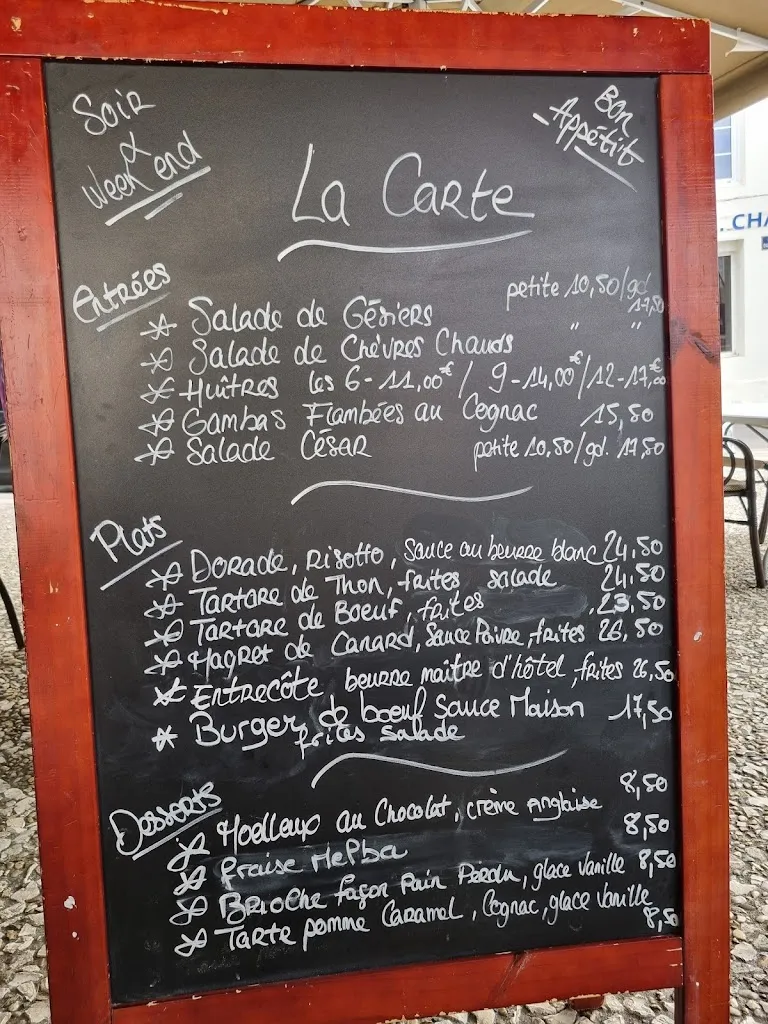 Soir
&
Week end
Bon
Appétit
La Carte
Entrées
* Salade de Gésiers petite 10,50/gd. 17,50
* Salade de Chèvres Chauds " "
* Huîtres les 6-11,00€ / 9-14,00€/12-17,00€
* Gambas Flambées au Cognac 15,50
* Salade César petite 10,50/gd. 17,50
Plats
* Dorade, Risotto, Sauce au beurre blanc 24,50
* Tartare de Thon, frites salade 24,50
* Tartare de Boeuf, frites 23,50
* Magret de Canard, Sauce Poivre, frites 26,50
* Entrecôte, beurre maître d'hôtel, frites 26,50
* Burger de boeuf Sauce Maison 17,50
frites Salade
Desserts
* Moelleux au Chocolat, crème Anglaise 8,50
* fraise Melba 8,50
* Brioche façon Pain Perdu, glace Vanille 8,50
* Tarte pomme Caramel, Cognac, glace Vanille 8,50
. CHA